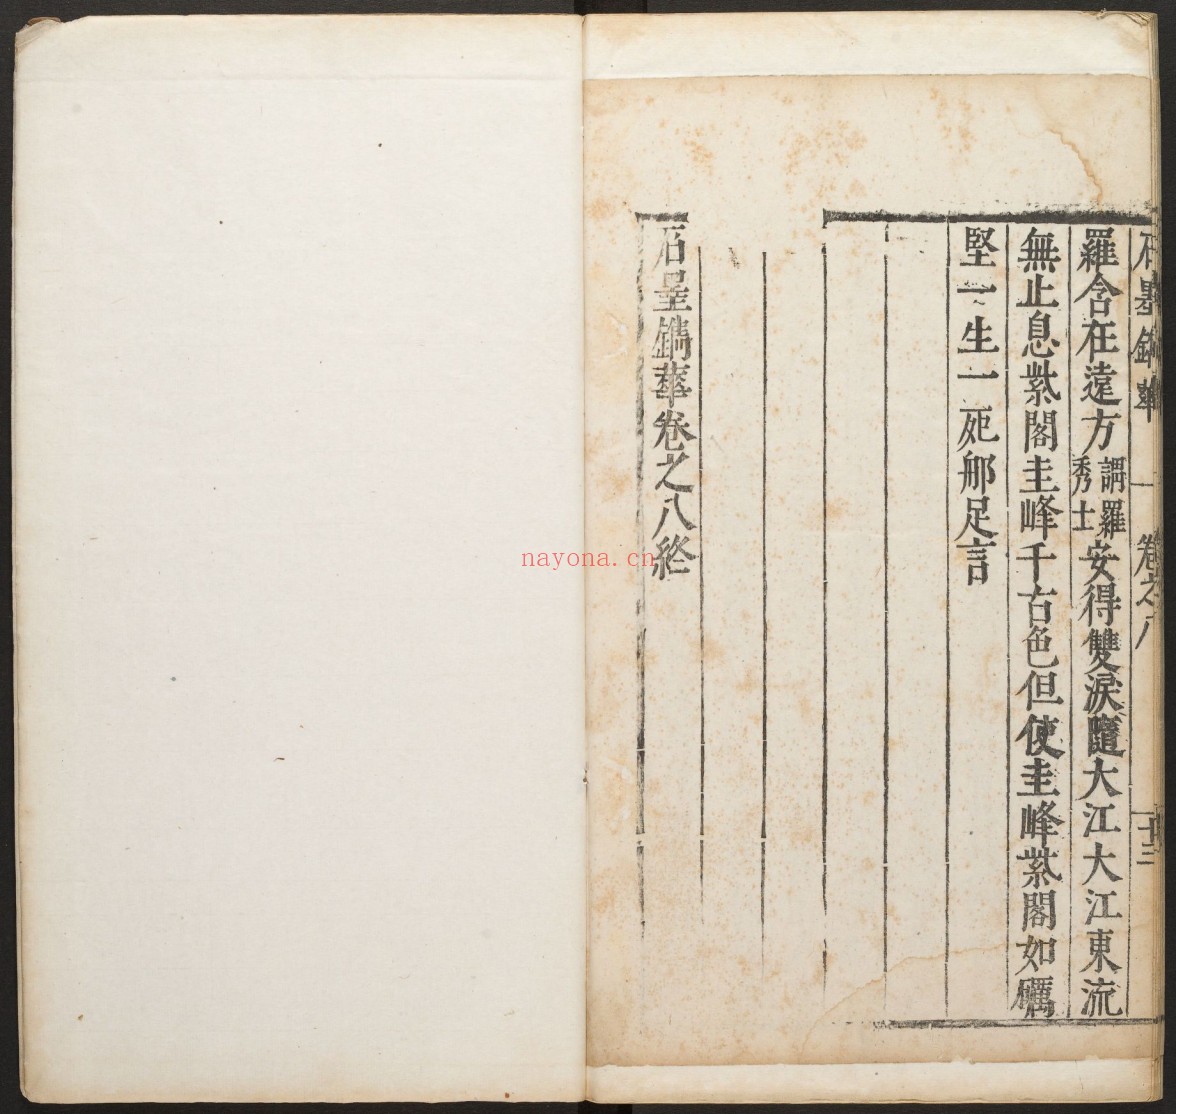 石墨鐫華 卷之八 十三
羅含在遠方謂羅秀士安得雙淚墮大江大江東流
無止息紫閣圭峰千古色但使圭峰紫閣如礪
堅一生一死那足言
石墨鐫華卷之八終
nayona.cn